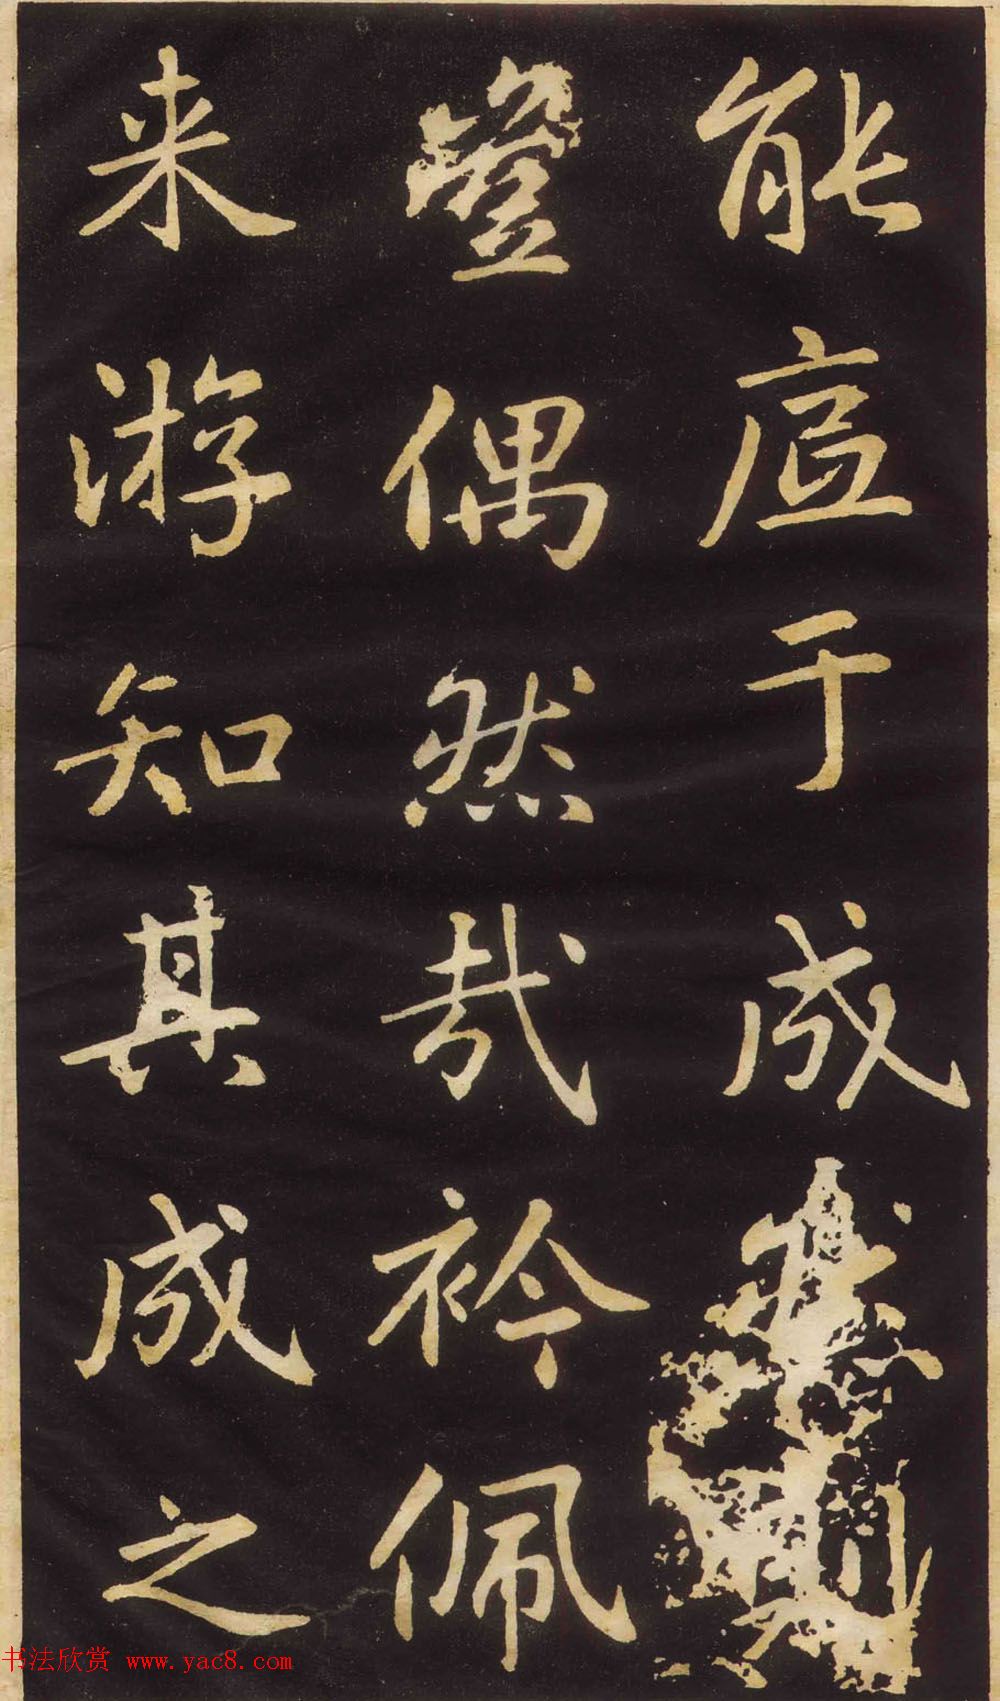 能底于成
豋偶然哉衿佩
来游知其成之
书法欣赏 www.yac8.com